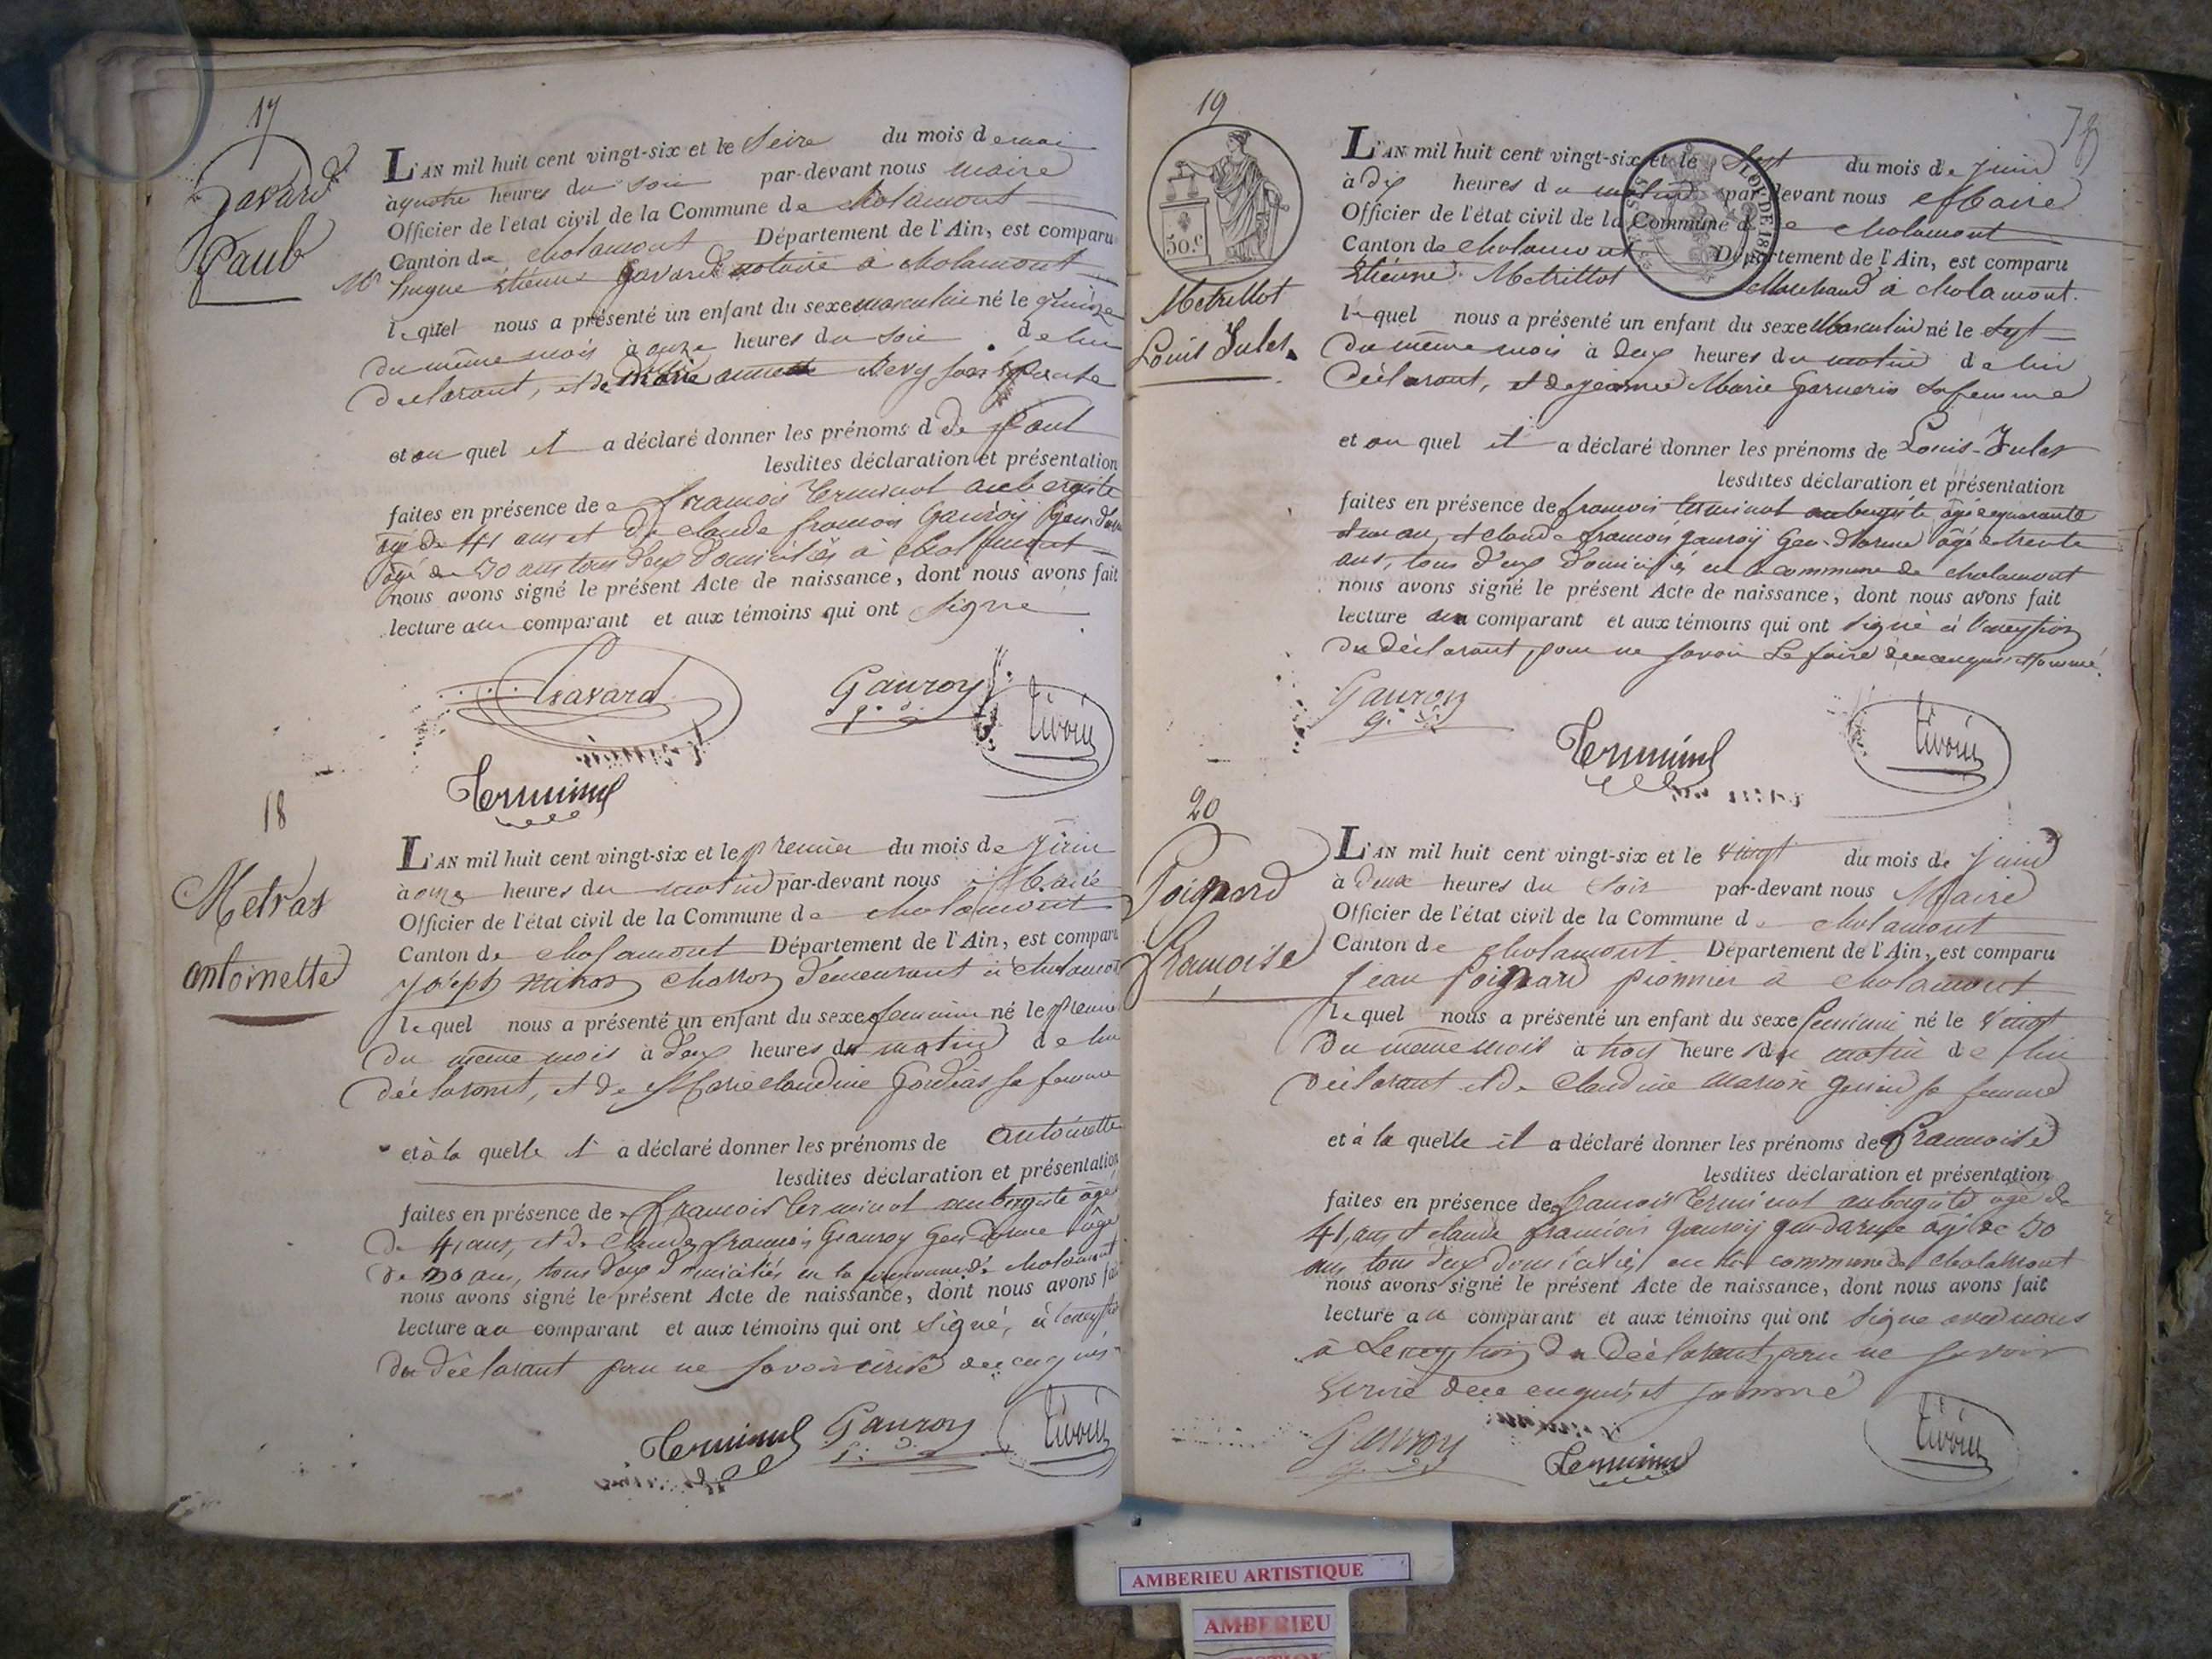 17
Gavard
Paul
L'AN mil huit cent vingt-six et le Seize du mois de mai
à quatre heures du soir par-devant nous maire
Officier de l'état civil de la Commune de cholamont
Canton de cholamont Département de l'Ain, est comparu
Mr étienne Gavard notaire à cholamont
lequel nous a présenté un enfant du sexe masculin né le quinze
du même mois à onze heures du soir de lui
déclarant, et de Marie son épouse
et au quel il a déclaré donner les prénoms d de Paul
lesdites déclaration et présentation
faites en présence de françois Terminet aubergiste
âgé de 41 ans et de claude françois Gauroy
âgé de 30 ans tous deux domiciliés à cholamont
nous avons signé le présent Acte de naissance, dont nous avons fait
lecture au comparant et aux témoins qui ont signé
Gavard Gauroy
g. d.
18
Metras
antoinette
L'AN mil huit cent vingt-six et le premier du mois de juin
à onze heures du matin par-devant nous Maire
Officier de l'état civil de la Commune de cholamont
Canton de cholamont Département de l'Ain, est comparu
joseph charron demeurant à cholamont
lequel nous a présenté un enfant du sexe feminin né le premier
du même mois à deux heures du matin de lui
déclarant, et de Marie claudine sa femme
et à la quelle il a déclaré donner les prénoms de antoinette
lesdites déclaration et présentation
faites en présence de françois Terminet aubergiste âgé
de 41 ans, et de claude françois Gauroy Gendarme âgé
de 30 ans, tous deux domiciliés en la commune de cholamont
nous avons signé le présent Acte de naissance, dont nous avons fait
lecture au comparant et aux témoins qui ont signé, à l'exception
du déclarant pour ne savoir de ce enquis
Gauroy
g. d.
19
78
50.c
Metrillot
Louis Jules
L'AN mil huit cent vingt-six et le sept du mois de juin
à dix heures du matin par-devant nous Maire
Officier de l'état civil de la Commune de cholamont
Canton de cholamont Département de l'Ain, est comparu
étienne Metrillot Marchand à cholamont.
lequel nous a présenté un enfant du sexe Masculin né le sept
du même mois à deux heures du matin de lui
déclarant, et de jeanne Marie Garnerin sa femme
et au quel il a déclaré donner les prénoms de Louis-Jules
lesdites déclaration et présentation
faites en présence de françois Terminet aubergiste âgé de quarante
et un an, et claude françois Gauroy Gendarme âgé de trente
ans, tous deux domiciliés en la commune de cholamont
nous avons signé le présent Acte de naissance, dont nous avons fait
lecture au comparant et aux témoins qui ont signé à l'exception
du déclarant, pour ne savoir le faire de ce enquis et sommé.
Gauroy
g. d.
20
Poignard
françoise
L'AN mil huit cent vingt-six et le vingt du mois de juin
à deux heures du soir par-devant nous Maire
Officier de l'état civil de la Commune de cholamont
Canton de cholamont Département de l'Ain, est comparu
jean Poignard pionnier à cholamont
lequel nous a présenté un enfant du sexe feminin né le vingt
du même mois à trois heures du matin de lui
déclarant et de claudine sa femme
et à la quelle il a déclaré donner les prénoms de françoise
lesdites déclaration et présentation
faites en présence de françois Terminet aubergiste âgé de
41, ans et claude françois Gauroy gendarme âgé de 30
ans tous deux domiciliés en la commune de cholamont
nous avons signé le présent Acte de naissance, dont nous avons fait
lecture au comparant et aux témoins qui ont signé avec nous
à l'exception du déclarant pour ne savoir
de ce enquis et sommé
Gauroy
g. d.
AMBERIEU ARTISTIQUE
AMBERIEU